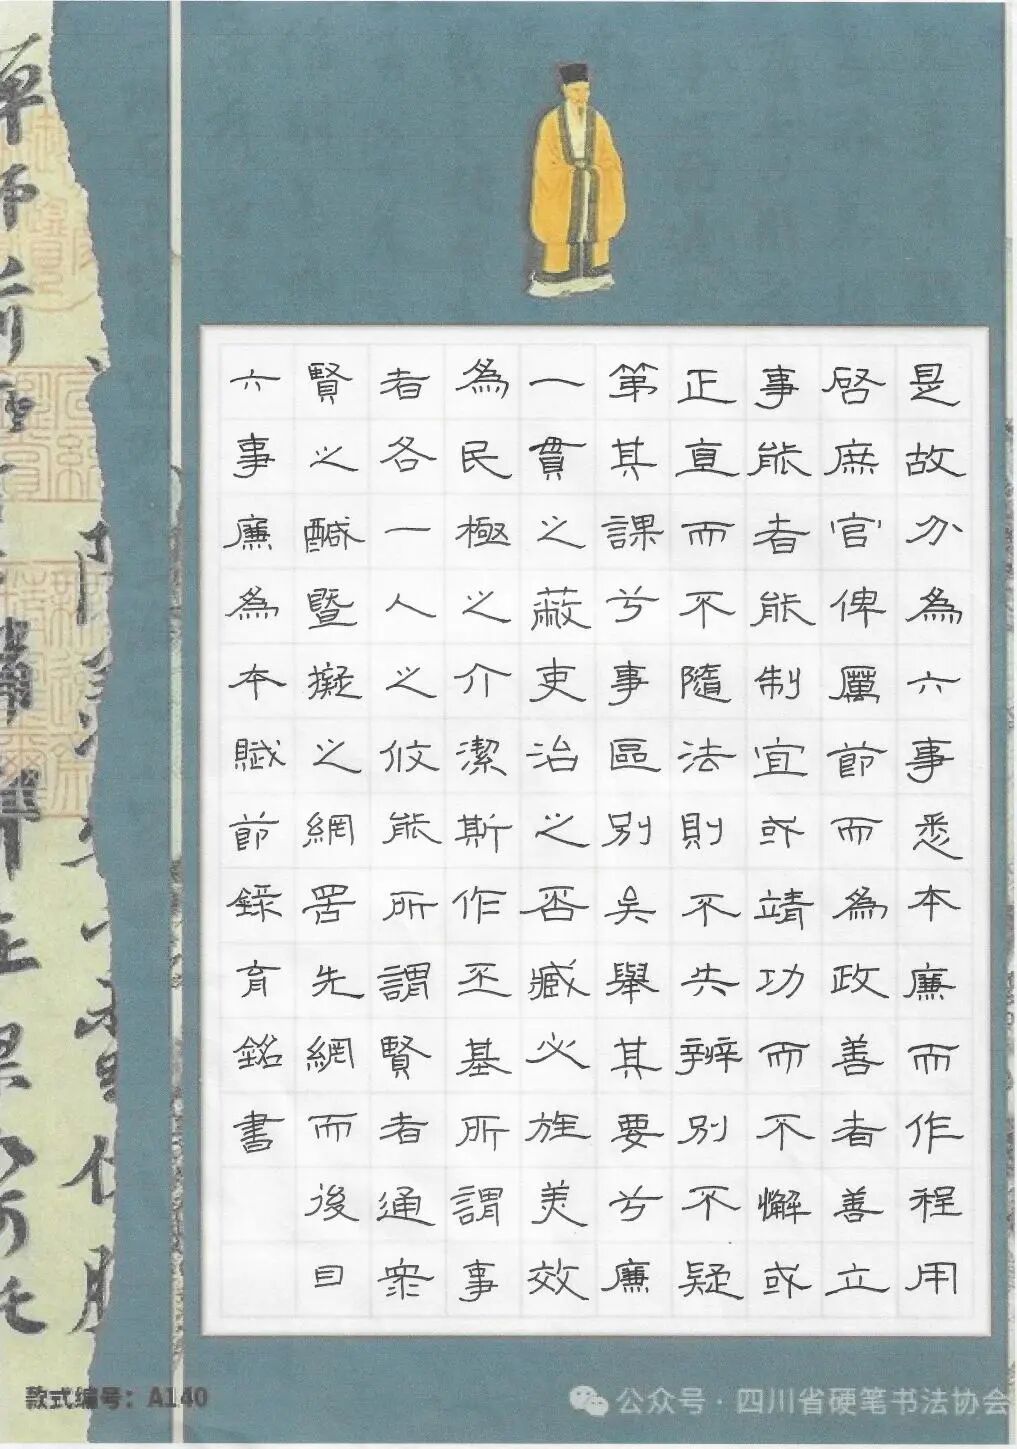 是故分為六事悉本廉而作程用
啓庶官俾厲節而為政善者善立
事能者能制宜或靖功而不懈或
正直而不隨法則不失辨別不疑
第其課兮事區別矣舉其要兮廉
一貫之蔽吏治之否臧必旌美效
為民極之介潔斯作丕基所謂事
者各一人之攸能所謂賢者通眾
賢之醎暨擬之網罟先網而後目
六事廉為本賦節錄育銘書
款式编号：A140
公众号·四川省硬笔书法协会